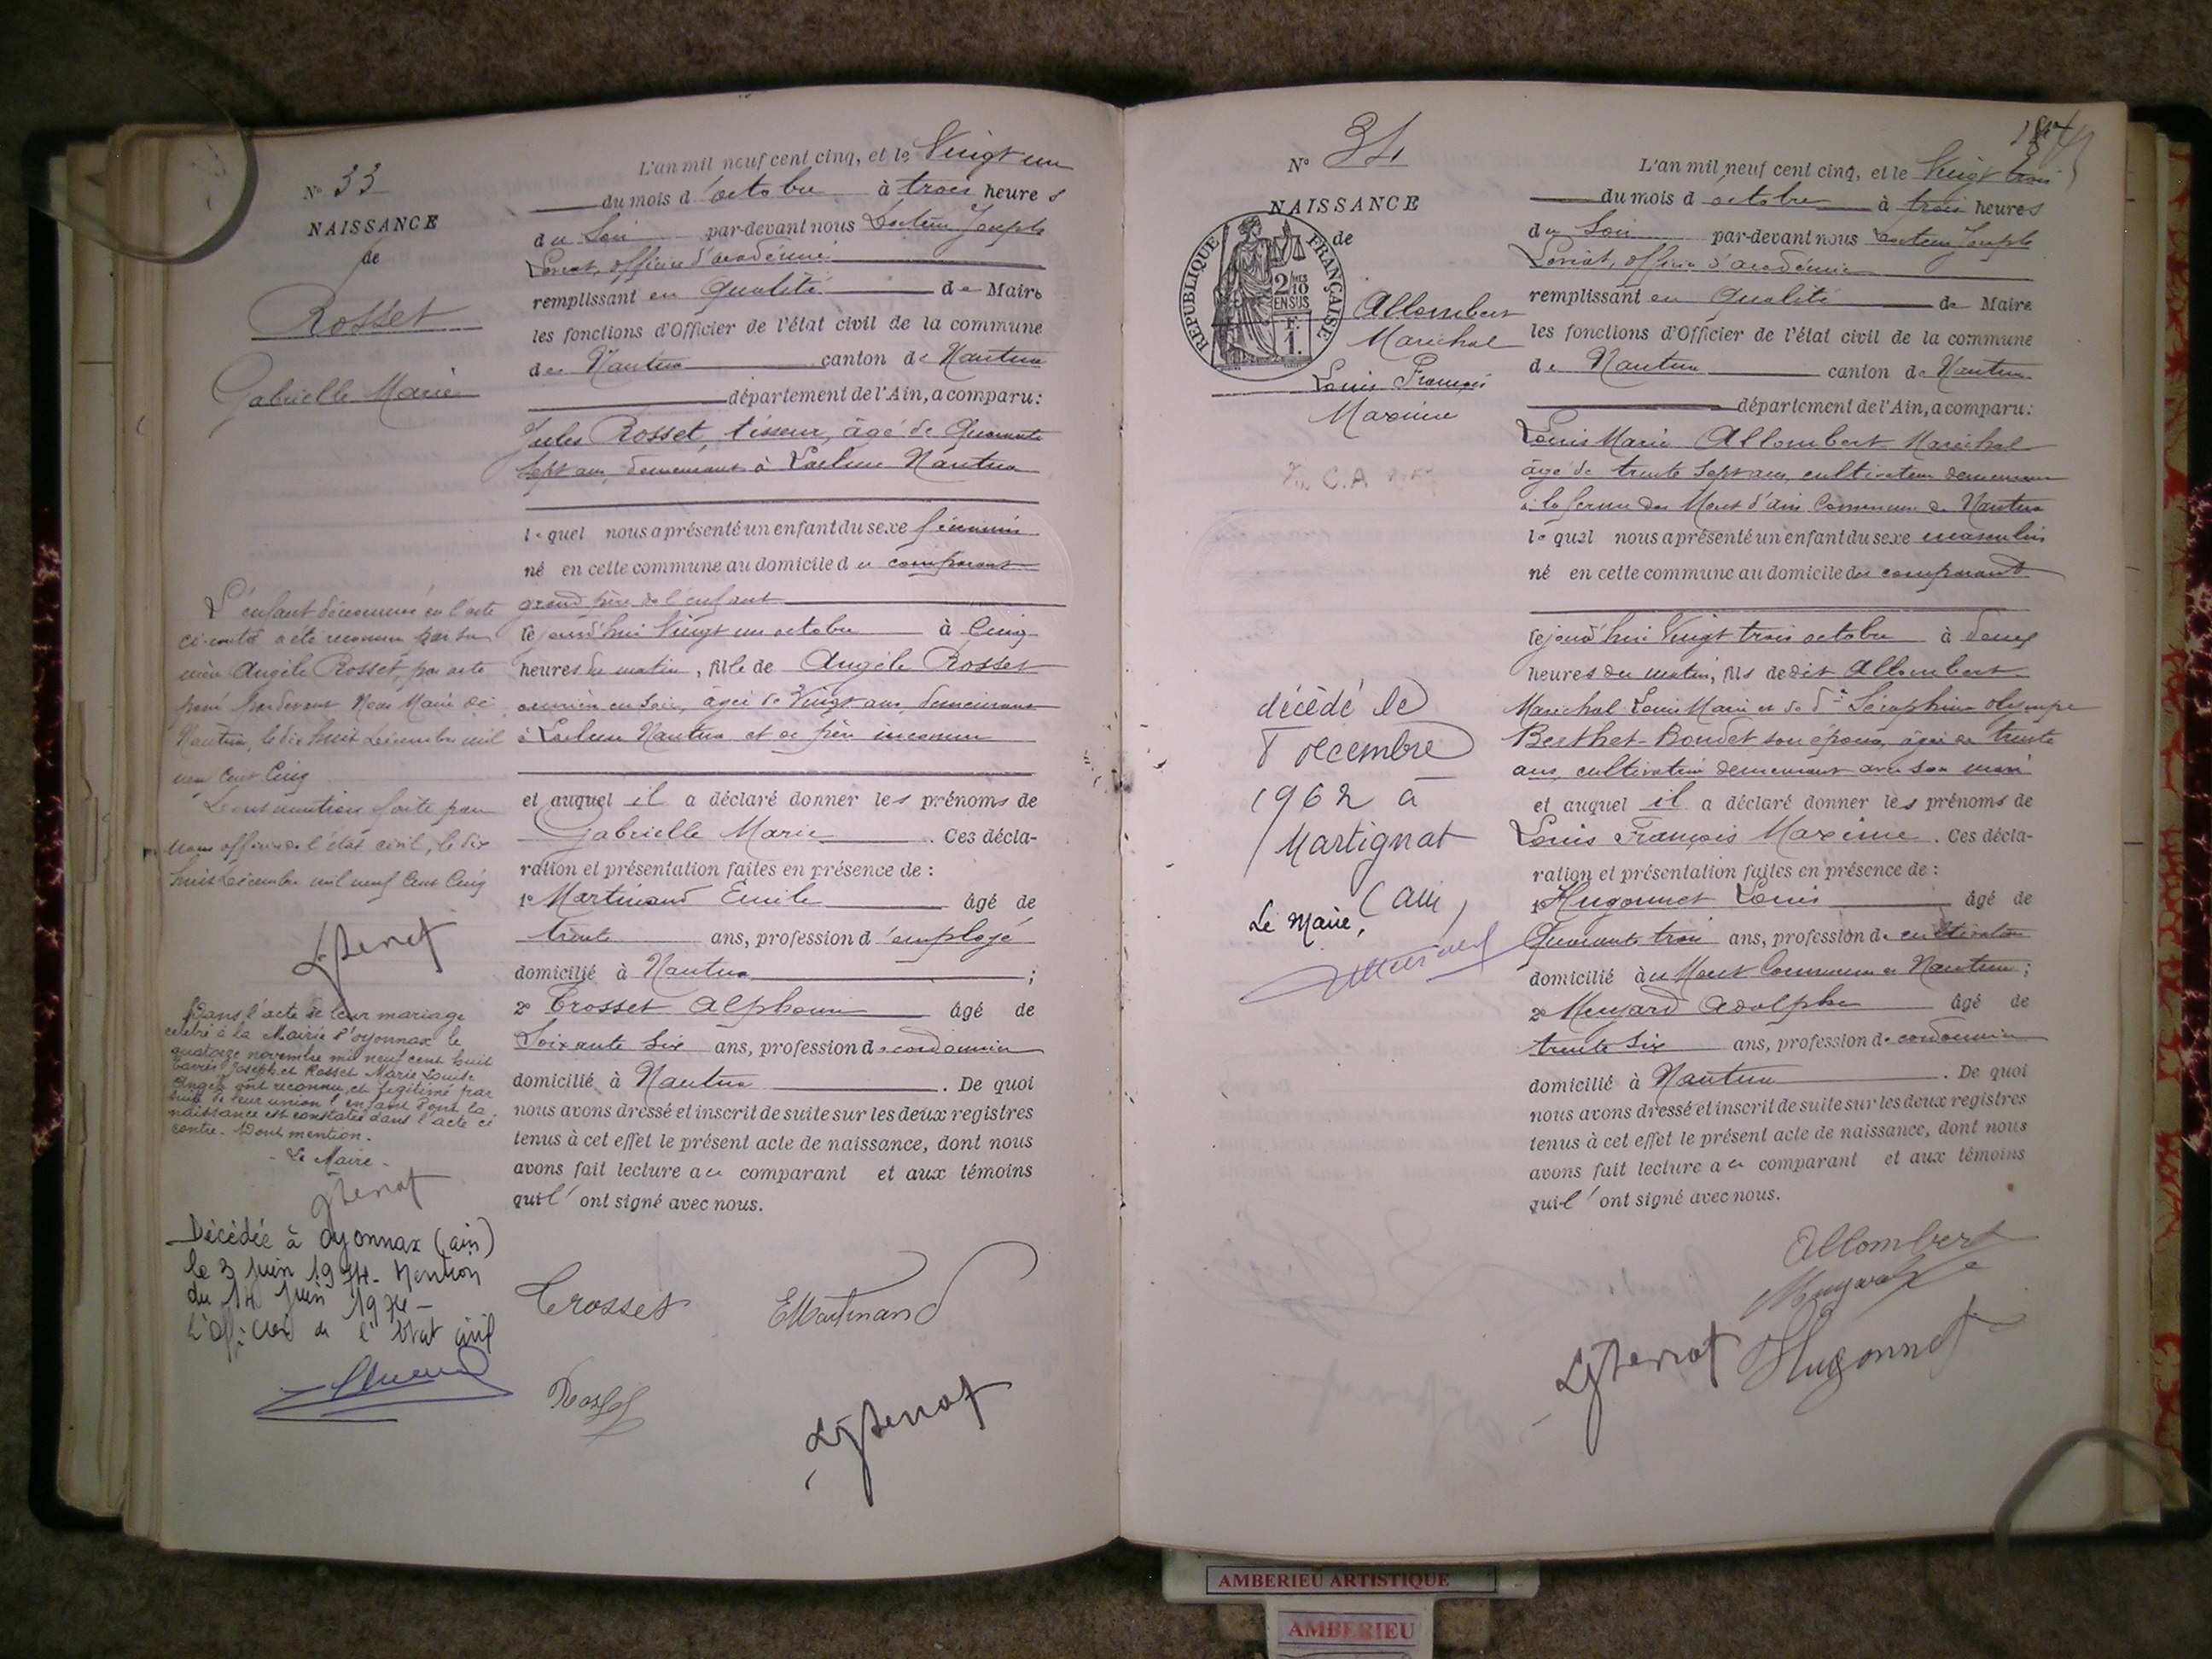 N° 33
NAISSANCE
de
Rosset
Gabrielle Marie
L'enfant dénommé en l'acte
ci-contre a été reconnu par sa
mère Angèle Rosset, par acte
passé pardevant Nous Maire de
Nantua, le dix huit décembre mil
neuf Cent Cinq
Dont mention faite par
Nous officier de l'état civil, le dix
huit décembre mil neuf Cent Cinq
Dans l'acte de leur mariage
célébré à la Mairie d'oyonnax le
quatorze novembre mil neuf cent huit
Joseph et Rosset Marie Louise
Angèle ont reconnu et légitimé par
suite de leur union l'enfant dont la
naissance est constatée dans l'acte ci
contre. Dont mention.
- Le Maire -
Décédée à Oyonnax (ain)
le 3 juin 1974 - Mention
du 14 juin 1974 -
L'officier de l'état civil
L'an mil neuf cent cinq, et le Vingt un
du mois d'octobre à trois heures
du Soir par-devant nous Docteur Joseph
officier d'académie
remplissant en qualité de Maire
les fonctions d'Officier de l'état civil de la commune
de Nantua canton de Nantua
département de l'Ain, a comparu :
Jules Rosset, tisseur, âgé de Quarante
Sept ans, demeurant à Nantua
lequel nous a présenté un enfant du sexe féminin
né en cette commune au domicile du comparant
grand père de l'enfant
le jourd'hui Vingt un octobre à Cinq
heures du matin, fille de Angèle Rosset
ouvrière en Soie, âgée de Vingt ans, demeurant
à Nantua et de père inconnu
et auquel il a déclaré donner les prénoms de
Gabrielle Marie. Ces décla-
ration et présentation faites en présence de :
1° Martinand Emile âgé de
trente ans, profession d'employé
domicilié à Nantua ;
2° Crosset Alphonse âgé de
Soixante Six ans, profession de cordonnier
domicilié à Nantua. De quoi
nous avons dressé et inscrit de suite sur les deux registres
tenus à cet effet le présent acte de naissance, dont nous
avons fait lecture au comparant et aux témoins
qui l'ont signé avec nous.
Crosset EMartinand
Rosset
N° 34
NAISSANCE
de
REPUBLIQUE FRANÇAISE
2/10 EN SUS
F. 1.
Allombert
Maréchal
Louis François
Maxime
décédé le
8 decembre
1962 à
Martignat
(ain)
Le Maire,
L'an mil neuf cent cinq, et le Vingt trois
du mois d'octobre à trois heures
du Soir par-devant nous Docteur Joseph
officier d'académie
remplissant en qualité de Maire
les fonctions d'Officier de l'état civil de la commune
de Nantua canton de Nantua
département de l'Ain, a comparu :
Louis Marie Allombert Maréchal
âgé de trente Sept ans, cultivateur demeurant
à la ferme des Monts d'ain Commune de Nantua
lequel nous a présenté un enfant du sexe masculin
né en cette commune au domicile du comparant
le jourd'hui Vingt trois octobre à deux
heures du matin, fils de dit Allombert
Maréchal Louis Marie et de de Séraphine Olympe
Berthet-Bondet son épouse, âgée de trente
ans, cultivatrice demeurant avec son mari
et auquel il a déclaré donner les prénoms de
Louis François Maxime. Ces décla-
ration et présentation faites en présence de :
1° Hugonnet Louis âgé de
Quarante trois ans, profession de cultivateur
domicilié au Mont Commune de Nantua ;
2° Adolphe âgé de
trente Six ans, profession de cordonnier
domicilié à Nantua. De quoi
nous avons dressé et inscrit de suite sur les deux registres
tenus à cet effet le présent acte de naissance, dont nous
avons fait lecture au comparant et aux témoins
qui l'ont signé avec nous.
Allombert
Hugonnet
AMBERIEU ARTISTIQUE
AMBERIEU